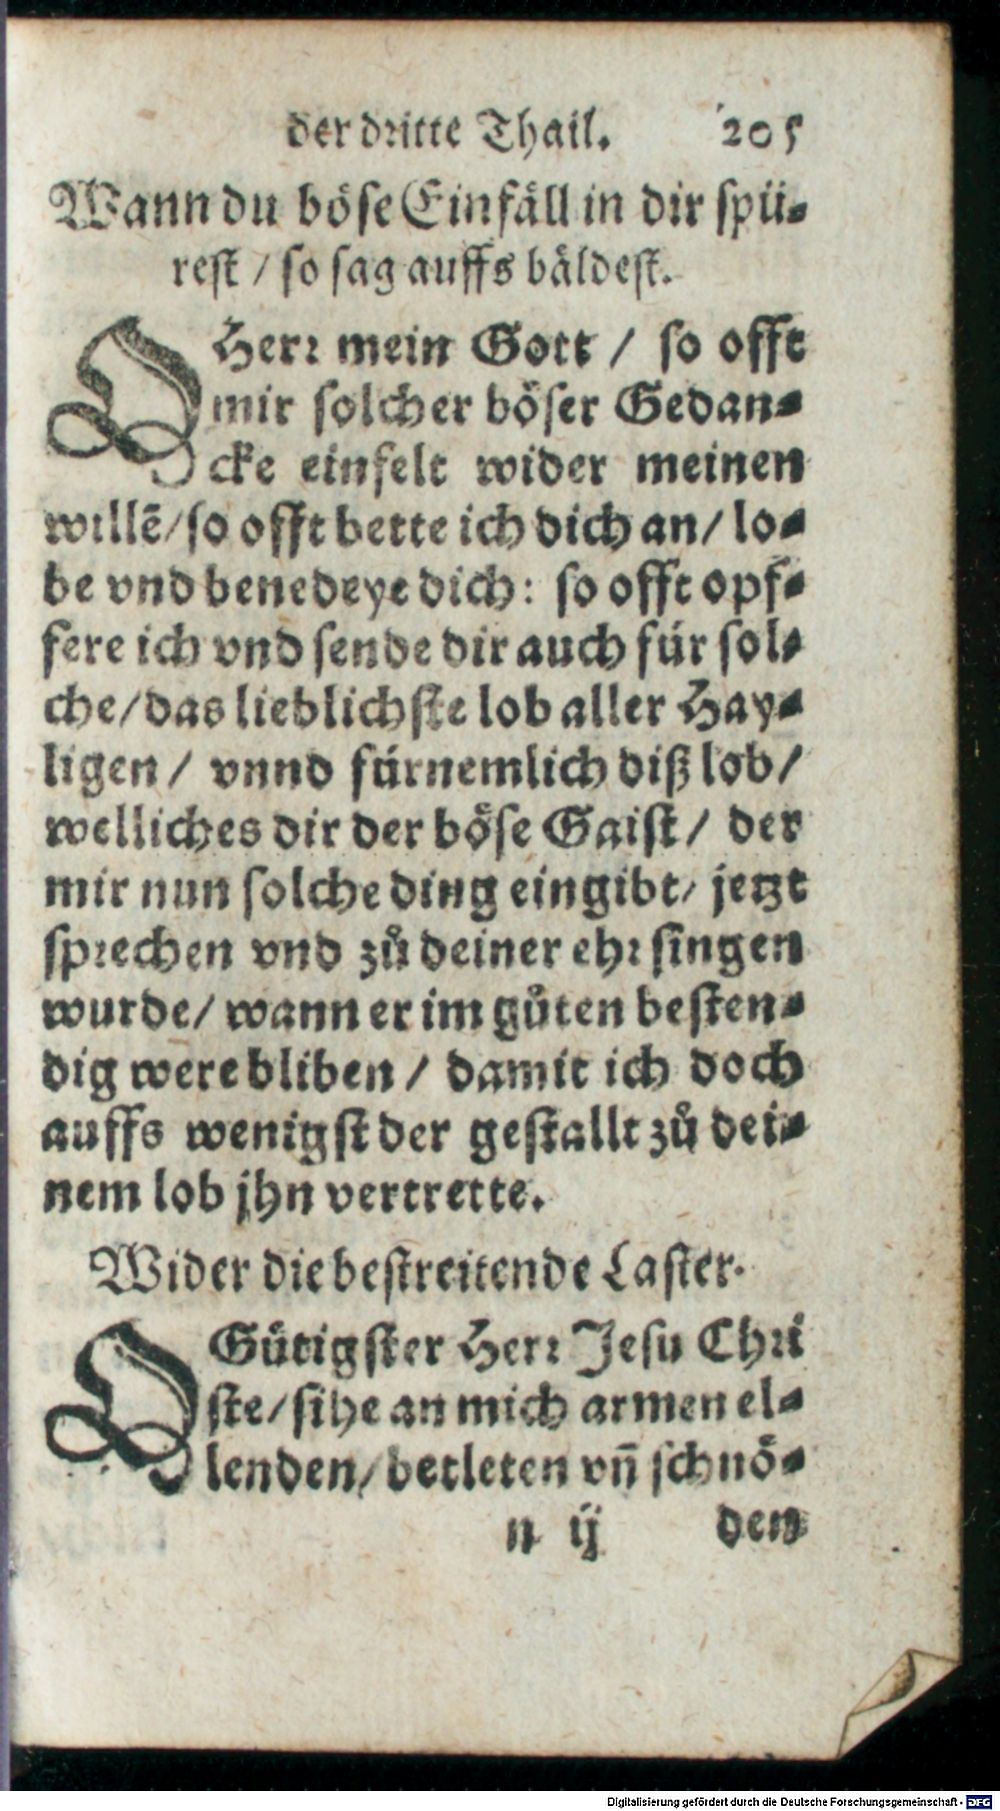 der dritte Thail. 205
Wann du böse Einfäll in dir spü-
rest / so sag auffs bäldest.
O Herr mein Gott / so offt
mir solcher böser Gedan-
cke einfelt wider meinen
willē/so offt bette ich dich an/ lo-
be vnd benedeye dich: so offt opf-
fere ich vnd sende dir auch für sol-
che/das lieblichste lob aller Hay-
ligen / vnnd fürnemlich diß lob/
welliches dir der böse Gaist/ der
mir nun solche ding eingibt/ jetzt
sprechen vnd zů deiner ehr singen
wurde/ wann er im gůten besten-
dig were bliben / damit ich doch
auffs wenigst der gestallt zů dei-
nem lob jhn vertrette.
Wider die bestreitende Laster.
O Gütigster Herr Jesu Chri
ste/sihe an mich armen el-
lenden/betleten vn̄ schnö-
n ij den
Digitalisierung gefördert durch die Deutsche Forschungsgemeinschaft - DFG